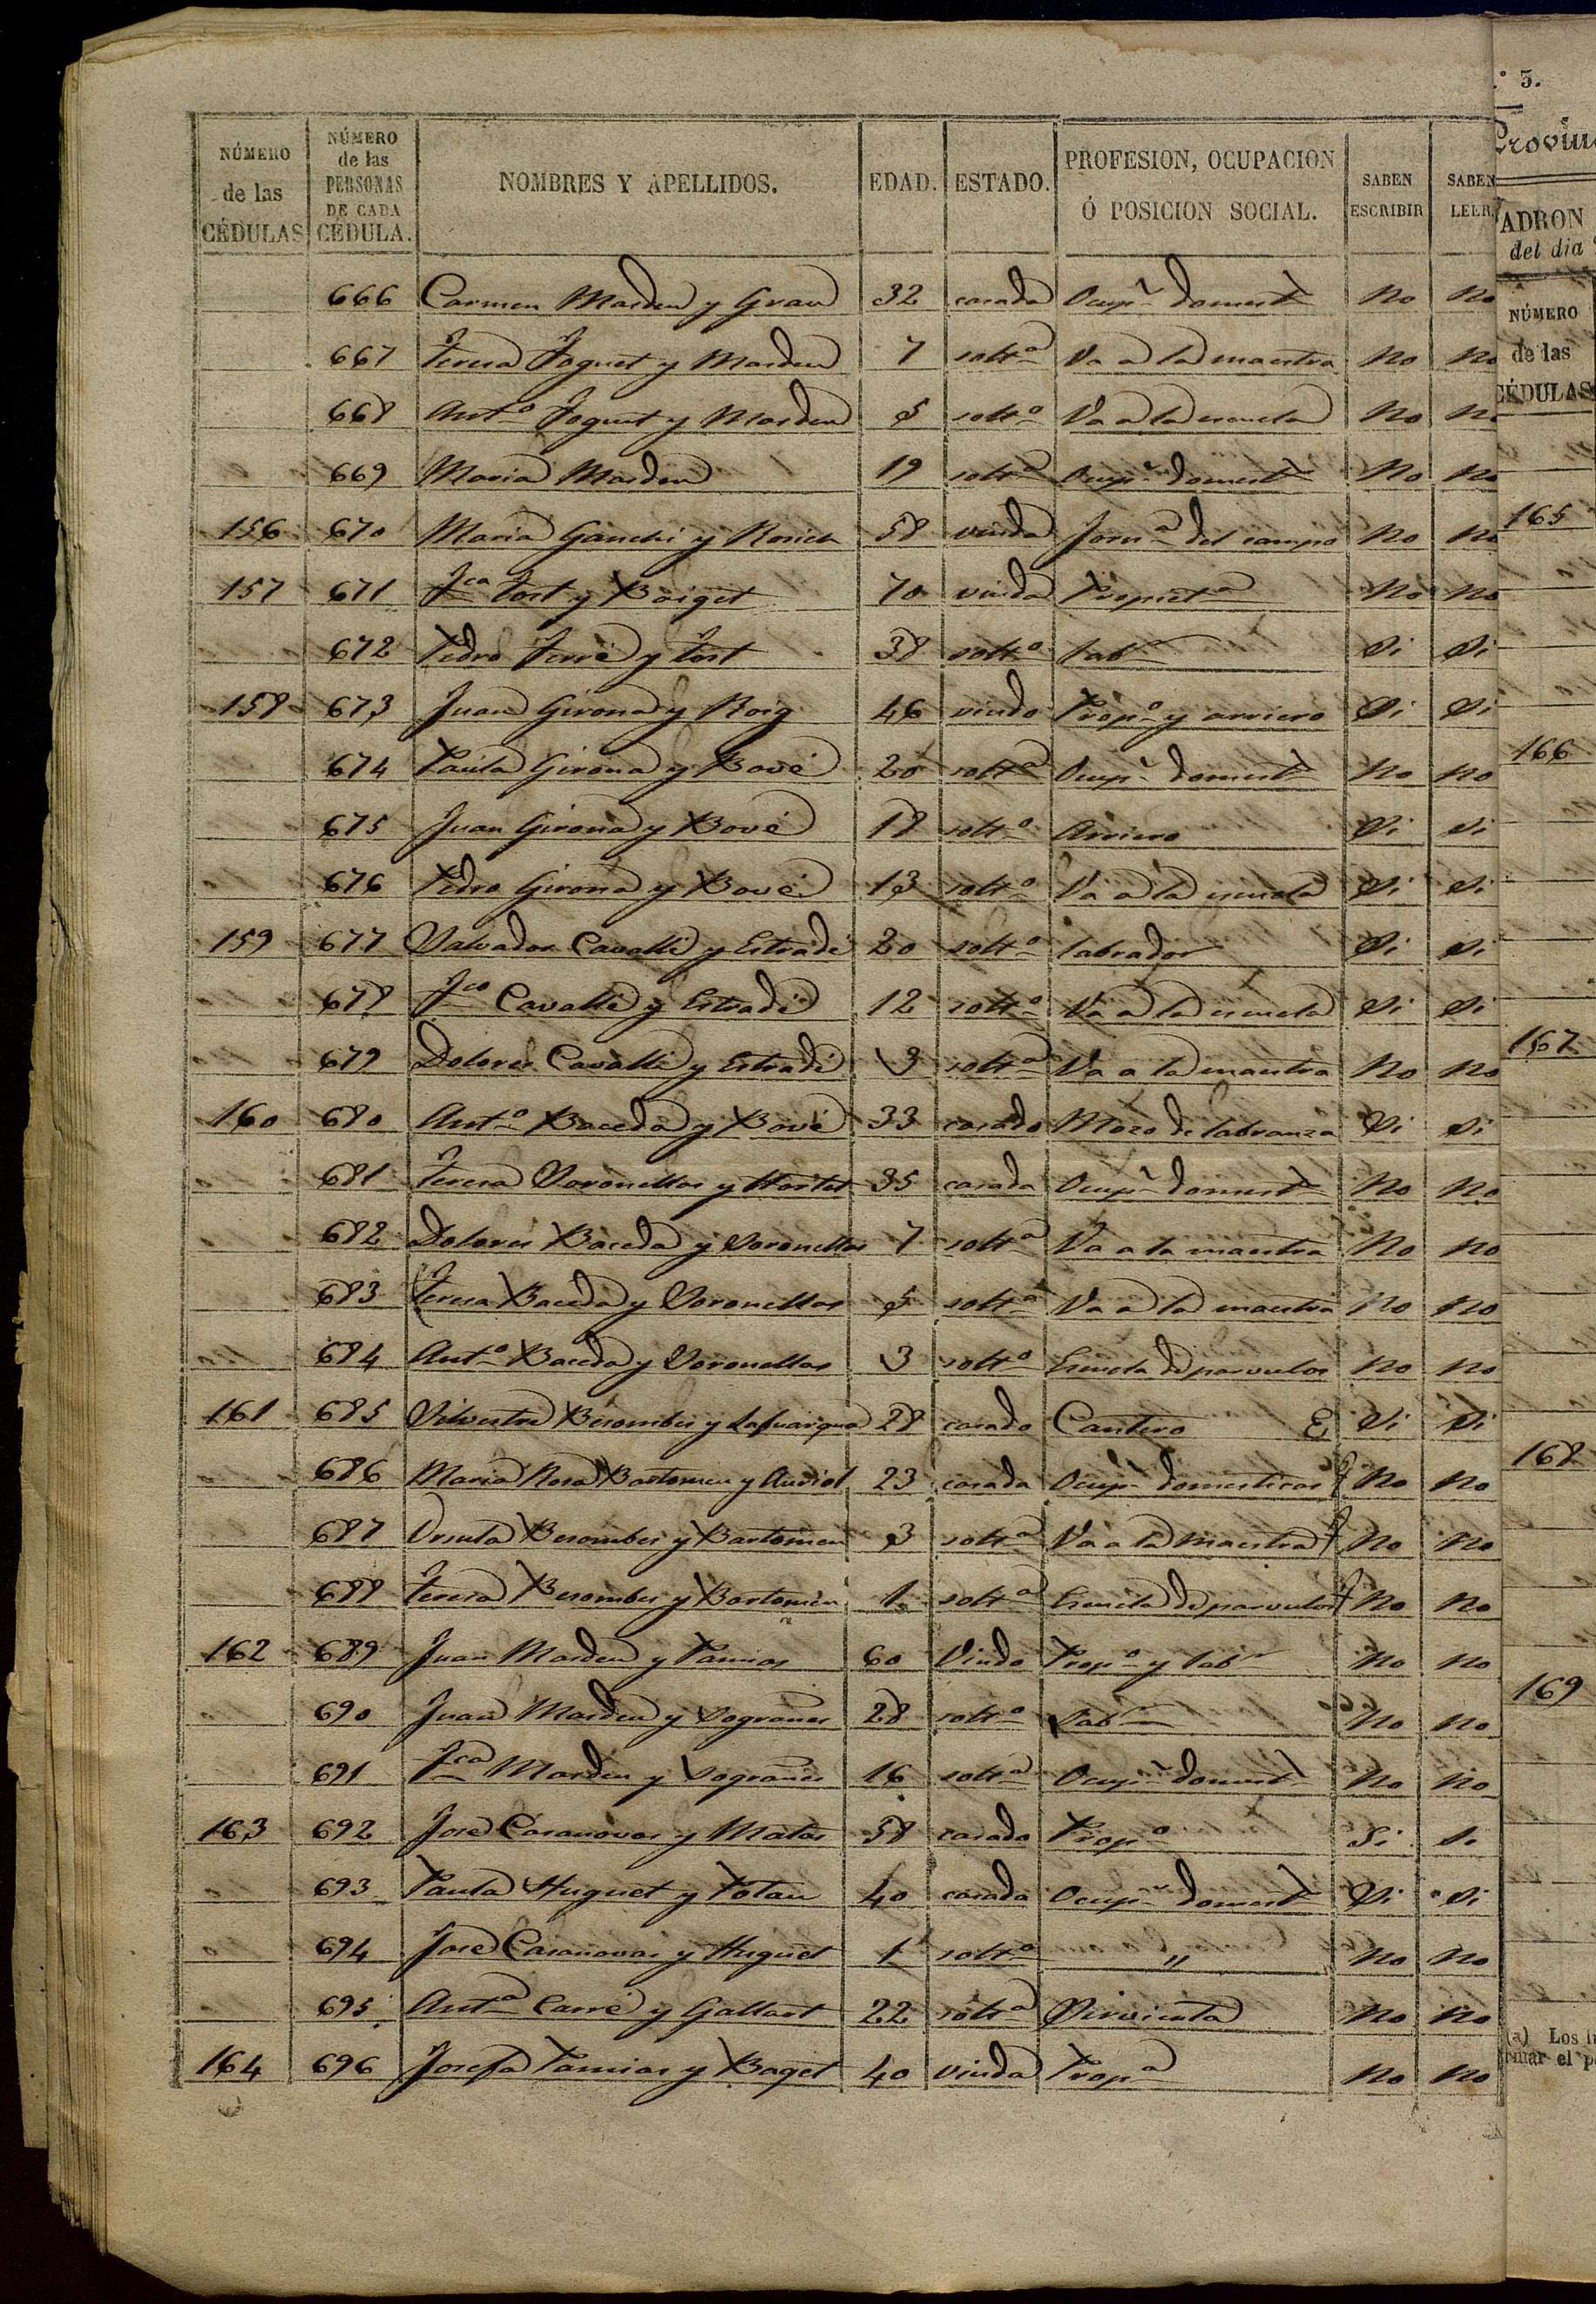 NÚMERO de las CÉDULAS NÚMERO de las PERSONAS DE CADA CÉDULA. NOMBRES Y APELLIDOS. EDAD. ESTADO. PROFESION, OCUPACION Ó POSICION SOCIAL. SABEN ESCRIBIR SABEN LEER.
666 Carmen Masdeu y Grau 32 casada Ocupn domesta No No
667 Teresa Foguet y Masdeu 7 solta Va a la maestra No No
668 Anto Foguet y Masdeu 5 solto Va a la escuela No No
669 Maria Masdeu 19 solta Ocupn domesta No No
156 670 Maria y Rosich 58 viuda Jorna del campo No No
157 671 Fca Tost y Baiget 70 viuda Propieta No No
672 Pedro Ferré y Tost 38 solto Labr Si Si
158 673 Juan Girona y Roig 46 viudo Propo y arriero Si Si
674 Paula Girona y Bové 20 solta Ocupn domesta No No
675 Juan Girona y Bové 18 solto Arriero Si Si
676 Pedro Girona y Bové 13 solto Va a la escuela Si Si
159 677 Salvador Cavallé y Estradé 20 solto Labrador Si Si
678 Fco Cavallé y Estradé 12 solto Va a la escuela Si Si
679 Dolores Cavallé y Estradé 3 solta Va a la maestra No No
160 680 Anto Baceda y Bové 33 casado Mozo de labranza Si Si
681 Teresa Voronellas y 35 casada Ocupn domesta No No
682 Dolores Baceda y Voronellas 7 solta Va a la maestra No No
683 Teresa Baceda y Voronellas 5 solta Va a la maestra No No
684 Anto Baceda y Voronellas 3 solto Escuela de parvulos No No
161 685 Silvestre Besombes y 28 casado Cantero E Si Si
686 Maria Rosa Bartomeu y Auriol 23 casada Ocupn domesticas No No
687 Ursula Besombes y Bartomeu 3 solta Va a la Maestra No No
688 Teresa Besombes y Bartomeu 1 solta Escuela de parvulos No No
162 689 Juan Masdeu y Pamias 60 Viudo Propo y labr No No
690 Juan Masdeu y Sograñes 28 solto Labr No No
691 Fca Masdeu y Sograñes 16 solta Ocupn domesta No No
163 692 José Casanovas y Matas 58 casado Propo Si Si
693 Paula Huguet y Potau 40 casada Ocupn domesta Si Si
694 José Casanovas y Huguet 1 solto " No No
695 Anta Carré y Gallart 22 solta Sirvienta No No
164 696 Josefa Pamias y Baget 40 viuda Propa No No
º 3.
ADRON
del dia
NÚMERO
de las
CÉDULAS
165
166
167
168
169
(a) Los